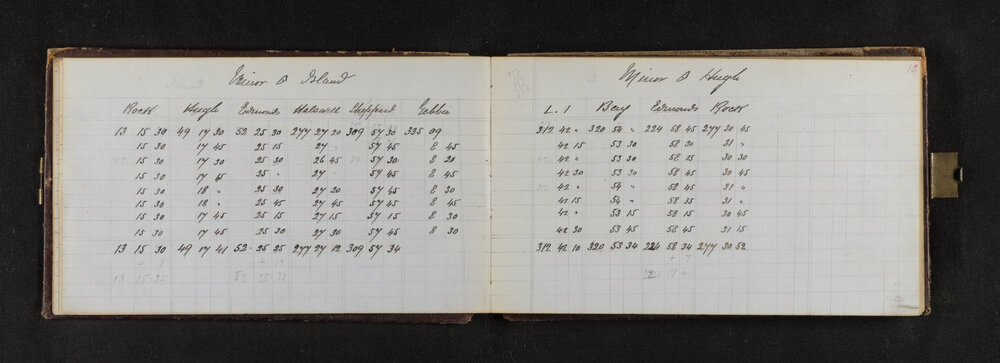 Minor Δ Island
Rock Hugh Edmonds Halswell Sheppard Gebbie
13 15 30 49 17 30 52 25 30 277 27 20 309 57 30 335 09
15 30 17 45 25 15 27 " 57 45 8 45
15 30 17 30 25 30 26 45 57 30 8 20
15 30 17 45 25 " 27 57 45 8 45
15 30 18 " 25 30 27 20 57 45 8 30
15 30 18 " 25 45 27 45 57 45 8 45
15 30 17 45 25 15 27 15 57 15 8 30
15 30 17 45 25 30 27 30 57 45 8 30
13 15 30 49 17 41 52 25 25 277 27 12 309 57 34
+ 5 + 13
13 15 35 52 25 38
13
Minor Δ Hugh
L. I Bay Edmonds Rock
312 42 " 320 54 " 224 58 45 277 30 45
42 15 53 30 58 30 31 "
42 " 53 30 58 15 30 30
42 30 53 30 58 45 30 45
42 " 54 " 58 45 31 "
42 15 54 " 58 35 31 "
42 " 53 15 58 15 30 45
42 30 53 45 58 45 31 15
312 42 10 320 53 34 224 58 34 277 30 52
+ 7
224 58 41